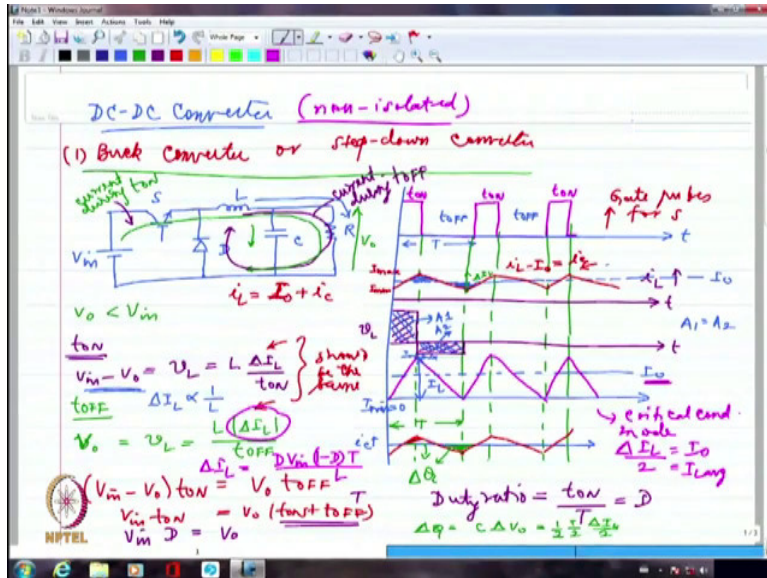 Note1 - Windows Journal
File Edit View Insert Actions Tools Help
Whole Page
B I
DC-DC Converter (non-isolated)
(1) Buck Converter or step-down converter
current during tON
current during tOFF
S
L
Vin
D
C
R
Vo
iL = Io + ic
Vo < Vin
tON
Vin - Vo = vL = L ΔIL / tON
ΔIL ∝ 1/L
should be the same
tOFF
Vo = vL = L |ΔIL| / tOFF
ΔIL = D Vin (1-D) T / L
(Vin - Vo) tON = Vo tOFF
Vin tON = Vo (tON + tOFF)
T
Vin D = Vo
NPTEL
tON tOFF tON tOFF tON
Gate pulses for S
T
t
Imax
Imin
ΔIL
iL - Io = ic
iL
Io
t
vL
A1
A2
t
A1 = A2
IL
Io
Imin=0
T
critical cond. mode
ΔIL / 2 = Io
= ILavg
ic
ΔQ
Duty ratio = tON / T = D
ΔQ = C ΔVo = 1/2 T/2 ΔIL/2
1 / 3